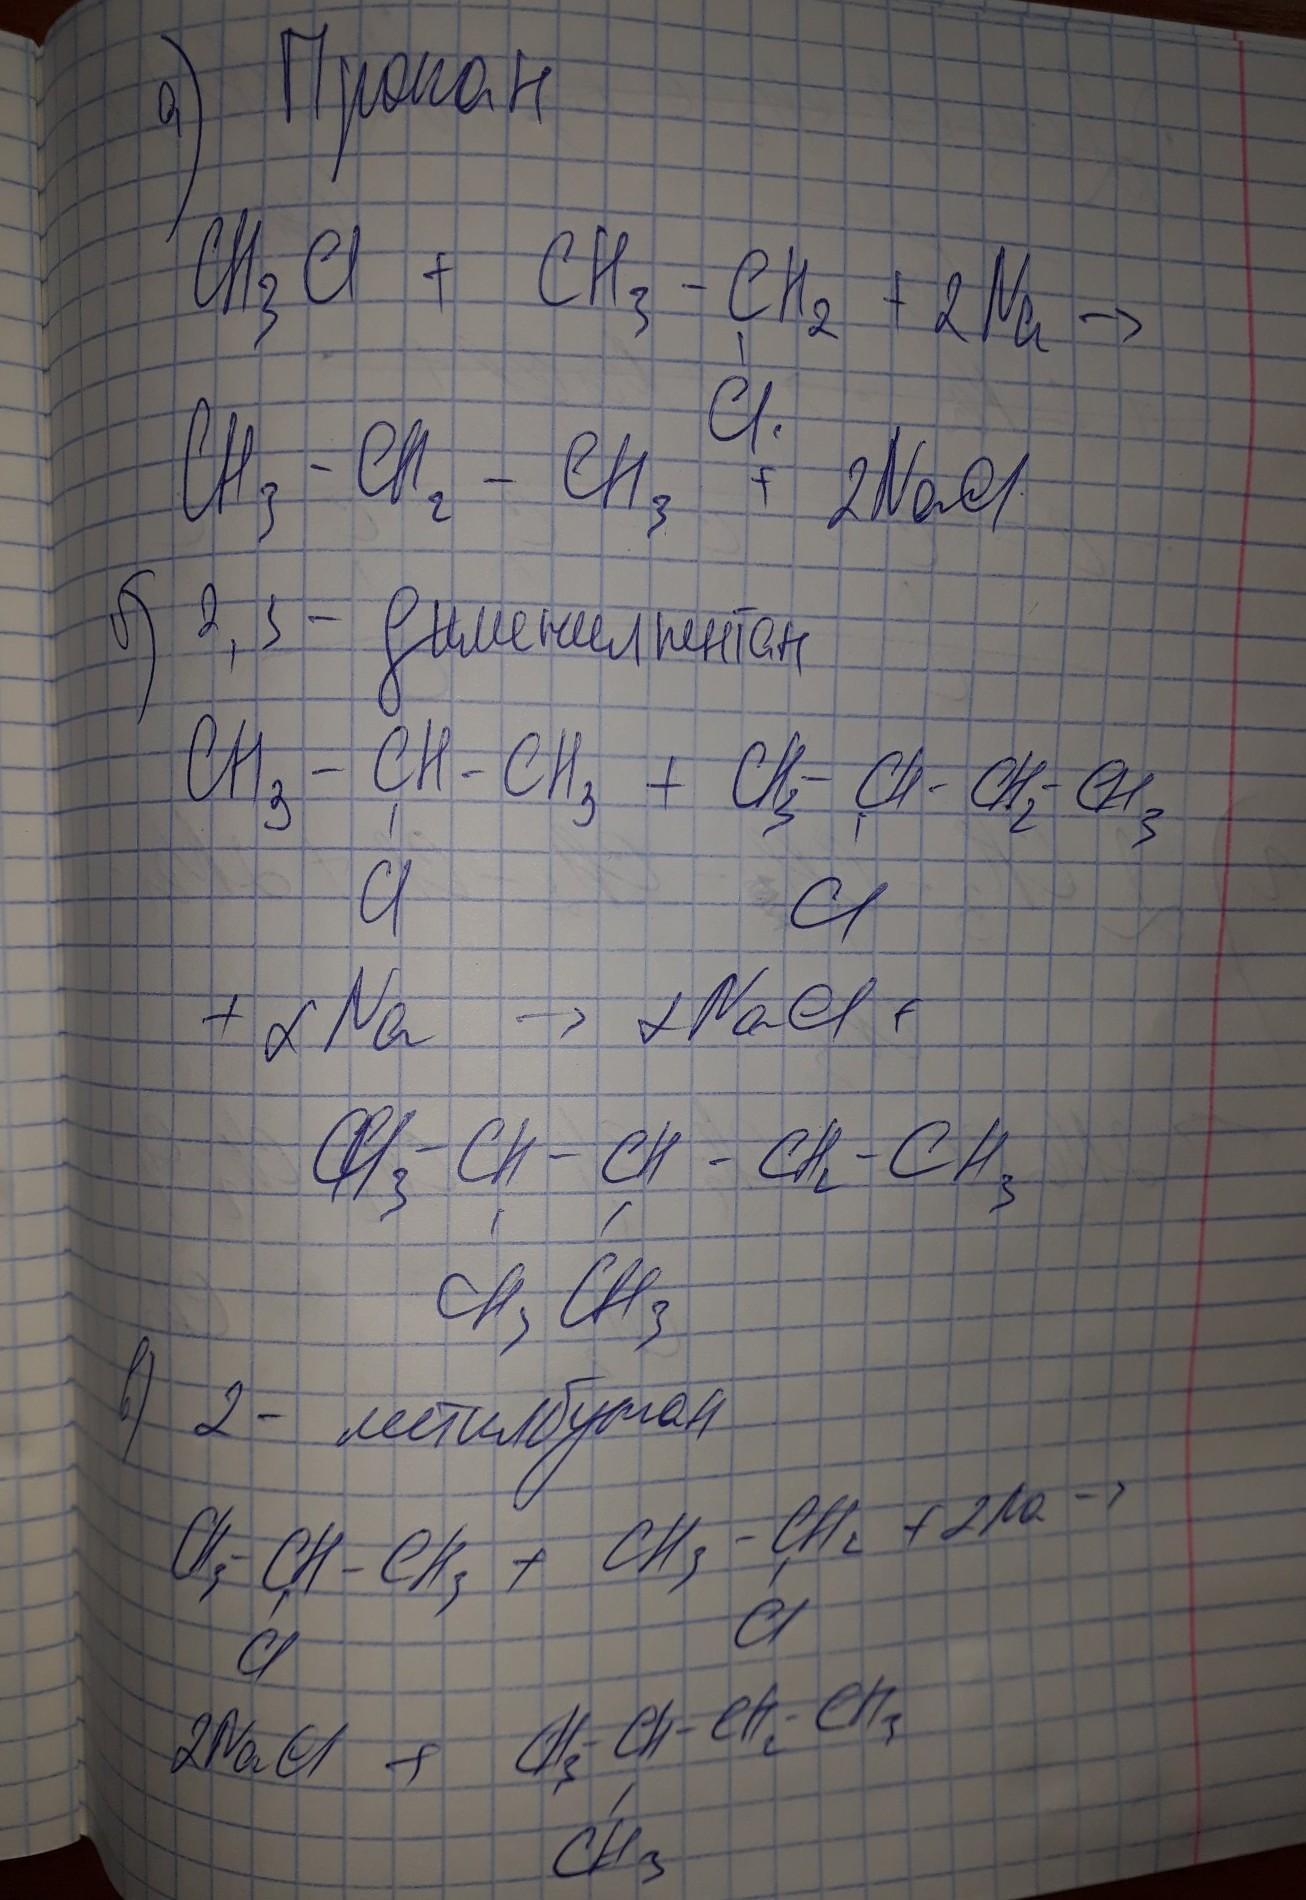 а) Пропан
CH3Cl + CH3 - CH2 + 2Na →
Cl.
CH3 - CH2 - CH3 + 2NaCl
б) 2,3 - диметилпентан
CH3 - CH - CH3 + CH3 - CH - CH2 - CH3
Cl Cl
+ 2Na → 2NaCl +
CH3 - CH - CH - CH2 - CH3
CH3 CH3
в) 2 - метилбутан
CH3 - CH - CH3 + CH3 - CH2 + 2Na →
Cl Cl
2NaCl + CH3 - CH - CH2 - CH3
CH3